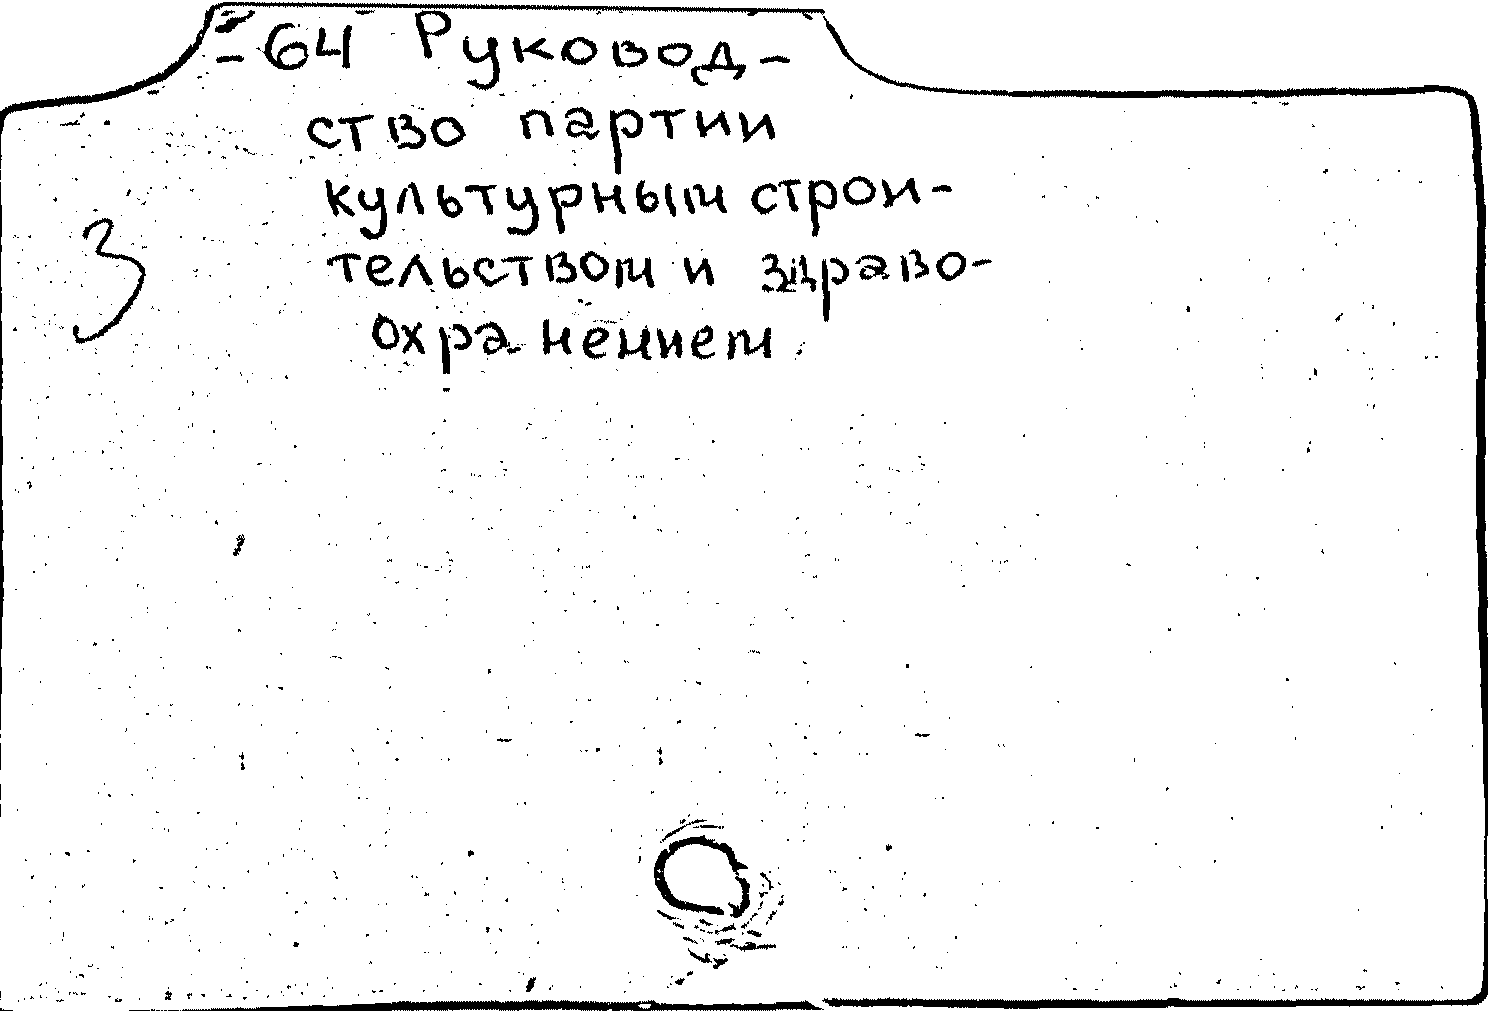 -64 Руковод-
ство партии
культурным строи-
тельством и здраво-
охранением.
3